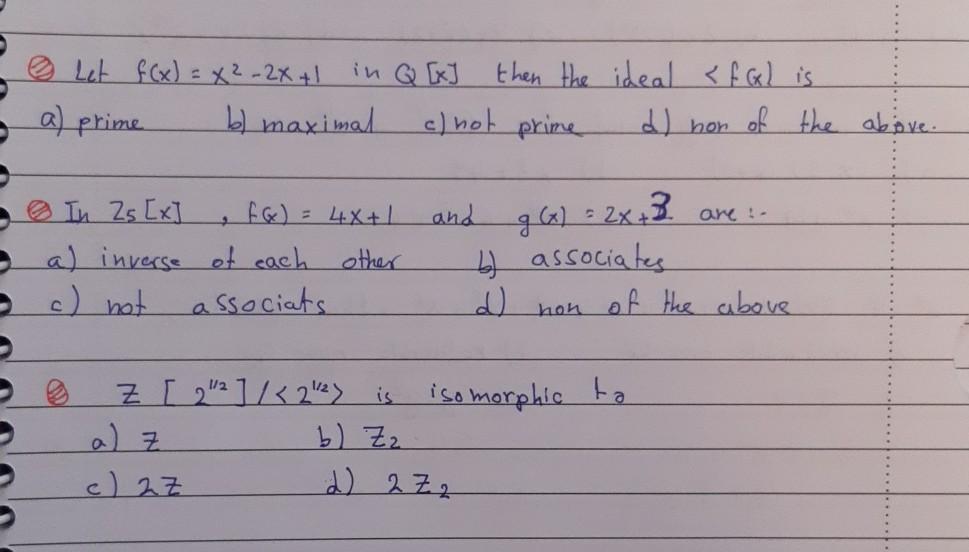 Let f(x) = x² - 2x + 1 in Q[x] then the ideal < f(x) is
a) prime b) maximal c) not prime d) non of the above.
In Z5[x] , f(x) = 4x+1 and g(x) = 2x+3 are :-
a) inverse of each other b) associates
c) not associats d) non of the above
Z [ 2^1/2 ] / < 2^1/2 > is isomorphic to
a) Z b) Z₂
c) 2Z d) 2Z₂